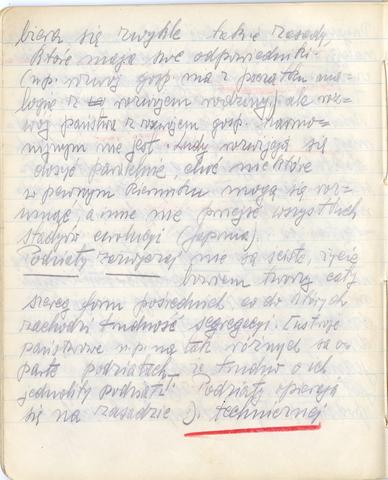 biera się zwykle takie zasady,
które mają swe odpowiedniki
(np. rozwój gosp. ma z początku ana=
logię z rozwojem rodziny) ale roz=
wój państwa z rozwojem gosp. harmo=
nijnym nie jest. Ludy rozwijają się
dosyć paralelnie, choć niektóre
w pewnym kierunku mogą się roz=
winąć, a inne nie przejść wszystkich
stadiów ewolucji (Japonia).
Podziały zazwyczaj nie są ścisłe, życie
bowiem tworzy cały
szereg form pośrednich co do których
zachodzi trudność segregacji. Ustroje
państwowe np. na tak różnych są o=
parte podziałach, że trudno o ich
jednolity podział. Podziały opierają
się na zasadzie 1). technicznej